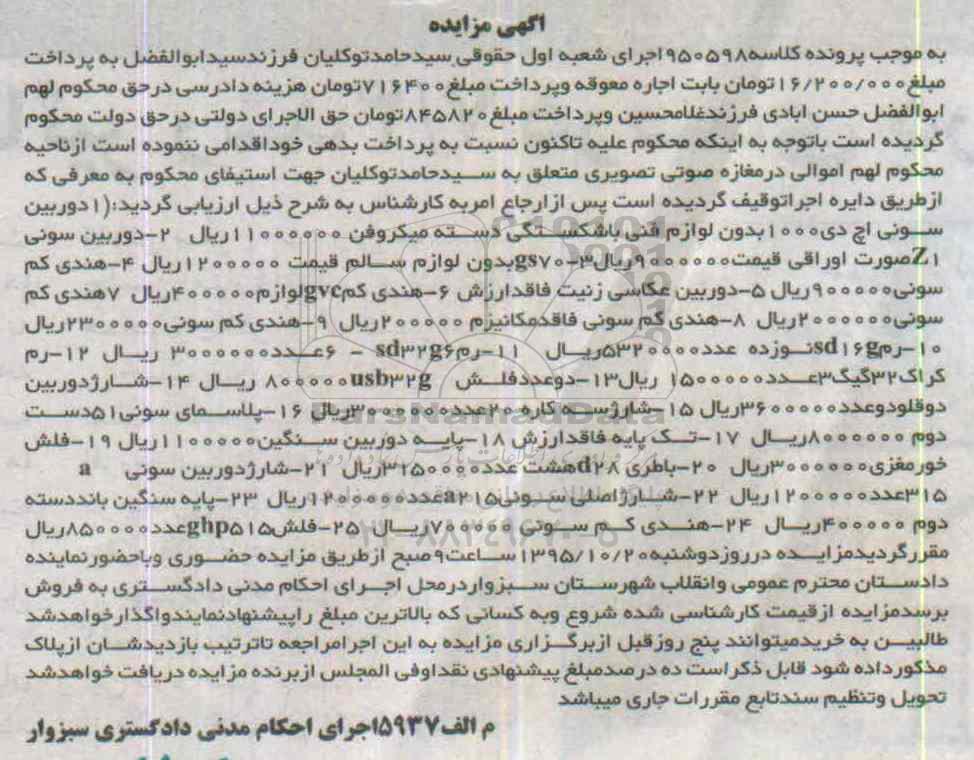 اگهی مزایده
به موجب پرونده کلاسه۹۵۰۵۹۸اجرای شعبه اول حقوقی سیدحامدتوکلیان فرزندسیدابوالفضل به پرداخت
مبلغ۱۶/۲۰۰/۰۰۰تومان بابت اجاره معوقه وپرداخت مبلغ۷۱۶۴۰۰تومان هزینه دادرسی درحق محکوم لهم
ابوالفضل حسن ابادی فرزندغلامحسین وپرداخت مبلغ۸۴۵۸۲۰تومان حق الاجرای دولتی درحق دولت محکوم
گردیده است باتوجه به اینکه محکوم علیه تاکنون نسبت به پرداخت بدهی خوداقدامی ننموده است ازناحیه
محکوم لهم اموالی درمغازه صوتی تصویری متعلق به سیدحامدتوکلیان جهت استیفای محکوم به معرفی که
ازطریق دایره اجراتوقیف گردیده است پس ازارجاع امربه کارشناس به شرح ذیل ارزیابی گردید:(۱دوربین
سونی اچ دی۱۰۰۰بدون لوازم فنی باشکستگی دسته میکروفن ۱۱۰۰۰۰۰۰ریال ۲-دوربین سونی
Z۱صورت اوراقی قیمت۹۰۰۰۰۰۰ریال۳-gs۷۰بدون لوازم سالم قیمت ۱۲۰۰۰۰۰ریال ۴-هندی کم
سونی۹۰۰۰۰۰ریال ۵-دوربین عکاسی زنیت فاقدارزش ۶-هندی کمgvcلوازم۴۰۰۰۰۰ریال ۷هندی کم
سونی۲۰۰۰۰۰۰ریال ۸-هندی کم سونی فاقدمکانیزم ۲۰۰۰۰۰ریال ۹-هندی کم سونی۲۳۰۰۰۰۰ریال
۱۰-رمsd۱۶gنوزده عدد۵۳۲۰۰۰۰ریال ۱۱-رمsd۳۲g۶ - ۶عدد۳۰۰۰۰۰۰ ریال ۱۲-رم
کراک۳۲گیگ۳عدد۱۵۰۰۰۰۰ ریال۱۳-دوعددفلش usb۳۲g۸۰۰۰۰۰ ریال ۱۴-شارژدوربین
دوقلودوعدد۳۶۰۰۰۰۰ریال ۱۵-شارژسه کاره ۲۰عدد۳۰۰۰۰۰۰ریال ۱۶-پلاسمای سونی۵۱دست
دوم ۸۰۰۰۰۰۰ریال ۱۷-تک پایه فاقدارزش ۱۸-پایه دوربین سنگین۱۱۰۰۰۰۰ریال ۱۹-فلش
خورمغزی۳۰۰۰۰۰۰ریال ۲۰-باطری d۲۸هشت عدد۳۱۵۰۰۰۰ریال ۲۱-شارژدوربین سونی a
۳۱۵عدد۱۲۰۰۰۰۰ریال ۲۲-شارژاصلی سونی۲۱۵aعدد۱۲۰۰۰۰۰ریال ۲۳-پایه سنگین بانددسته
دوم ۴۰۰۰۰۰ریال ۲۴-هندی کم سونی ۷۰۰۰۰۰ریال ۲۵-فلشghp۵۱۵عدد۸۵۰۰۰۰ریال
مقررگردیدمزایده درروزدوشنبه۱۳۹۵/۱۰/۲۰ساعت۹صبح ازطریق مزایده حضوری وباحضورنماینده
دادستان محترم عمومی وانقلاب شهرستان سبزواردرمحل اجرای احکام مدنی دادگستری به فروش
برسدمزایده ازقیمت کارشناسی شده شروع وبه کسانی که بالاترین مبلغ راپیشنهادنمایندواگذارخواهدشد
طالبین به خریدمیتوانند پنج روزقبل ازبرگزاری مزایده به این اجرامراجعه تاترتیب بازدیدشان ازپلاک
مذکورداده شود قابل ذکراست ده درصدمبلغ پیشنهادی نقداوفی المجلس ازبرنده مزایده دریافت خواهدشد
تحویل وتنظیم سندتابع مقررات جاری میباشد
م الف۵۹۳۷اجرای احکام مدنی دادگستری سبزوار
ParsNamadData